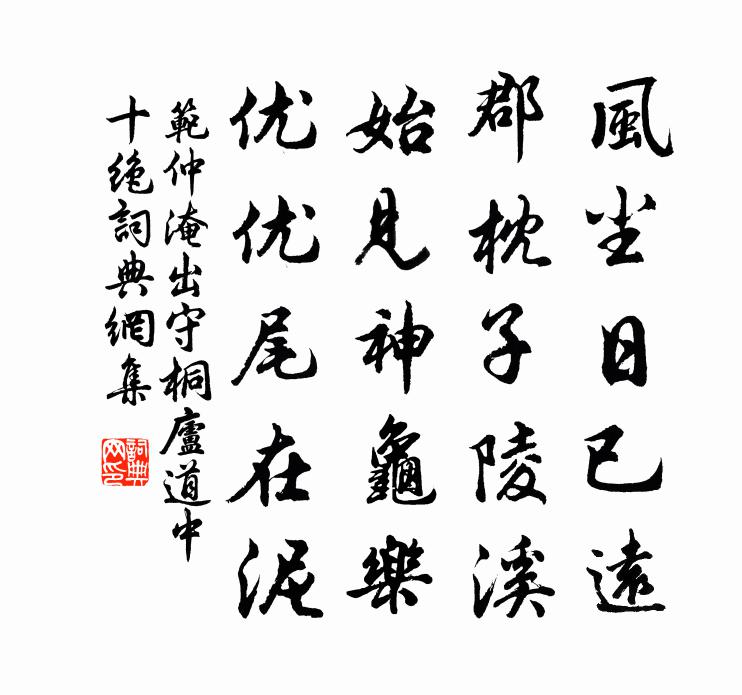 風尘日已遠
郡枕子陵溪
始見神龜樂
优优尾在泥
範仲淹出守桐廬道中
十绝詞典網集
詞典網印